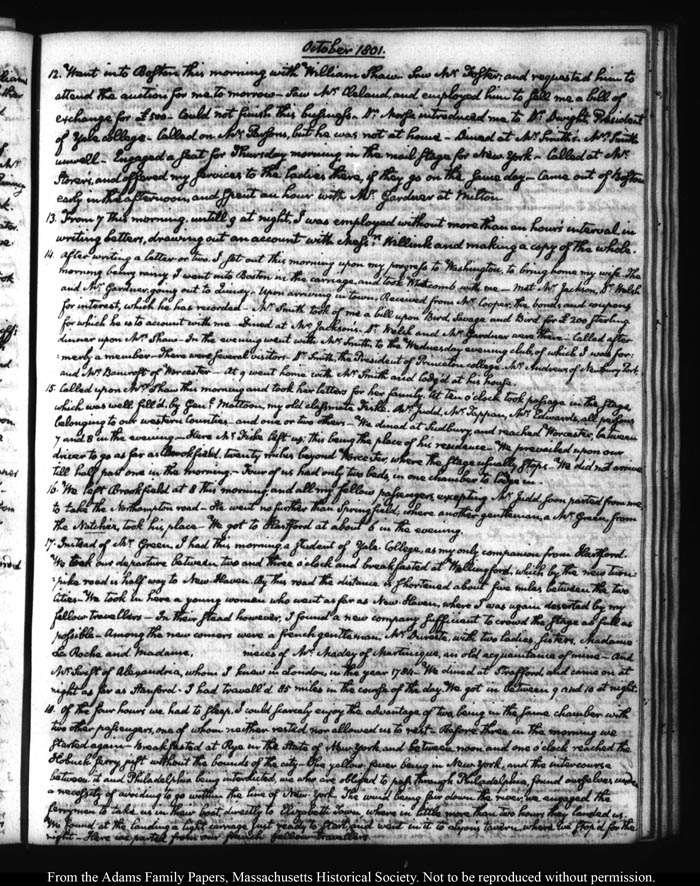 October 1801.
12. Went into Boston this morning with William Shaw. Saw Mr. Foster, and requested him to
attend the auction for me to morrow — Saw Mr. Cleland, and employed him to sell me a bill of
exchange for £500 — Could not finish this business. Dr. Morse introduced me to Dr. Dwight President
of Yale college — Called on Mr. Parsons, but he was not at home — Dined at Mr. Smith's. Mrs. Smith
unwell — Engaged a seat for Thursday morning in the mail stage for New York — Called at Mr.
Storer's, and offered my services to the ladies there, if they go on the same day — Came out of Boston
early in the afternoon, and spent an hour with Mr. Gardner at Milton.
13. From 7 this morning, untill 9 at night, I was employed without more than an hour's interval, in
writing letters, drawing out an account with Messrs. Willink and making a copy of the whole.
14. After writing a letter or two, I set out this morning upon my progress to Washington, to bring home my wife. The
morning being rainy I went into Boston in the carriage, and took Whitcomb with me — Met Mr. Jackson, Dr. Welsh
and Mr. Gardner, going out to Quincy. Upon arriving in town, Received from Mr. Cooper, the bonds and coupons
for interest, which he has recorded — Mr. Smith took of me a bill upon Bird, Savage and Bird for £200 sterling
for which he is to account with me — Dined at Mr. Jackson's. Dr. Welsh and Mr. Gardner were there — Called after
dinner upon Mrs. Shaw — In the evening went with Mr. Smith, to the Wednesday evening club, of which I was for:
:merly a member — There were several visitors — Dr. Smith the President of Princeton college. Mr. Andrews of Newbury Port
and Mr. Bancroft of Worcester — At 9 went home with Mr. Smith and lodg'd at his house.
15. Called upon Mrs. Shaw this morning and took her letters for her family. At ten o'clock took passage in the stage,
which was well fill'd by Genl. Mattoon, my old classmate Fiske. Mr. Judd, Mr. Tappan, Mrs. Edwards, all persons
belonging to our western counties — and one or two others — We dined at Sudbury, and reached Worcester, between
7 and 8 in the evening — Here Mr. Fiske left us; this being the place of his residence — We prevailed upon our
driver to go as far as Brookfield, twenty miles beyond Worcester, where the stage usually stops — We did not arrive
till half past one in the morning — Four of us had only two beds, in one chamber to lodge in.
16. We left Brookfield at 8 this morning, and all my fellow passengers, excepting Mr. Judd, soon parted from me,
to take the Northampton road — He went no further than Springfield, where another gentleman, a Mr. Green, from
the Natchez, took his place — We got to Hartford at about 6 in the evening.
17. Instead of Mr. Green, I had this morning, a student of Yale College, as my only companion from Hartford.
We took our departure between two and three o'clock and breakfasted at Wallingford, which by the new turn:
:pike road is half way to New Haven. By this road the distance is shortened about five miles between the two
cities — We took in here a young woman, who went as far as New Haven, where I was again deserted by my
fellow travellers — In their stead however, I found a new company sufficient to crowd the stage as full as
possible — Among the new comers were a french gentleman, Mr. with two ladies, sisters, Madame
La Roche and Madame, nieces of Mr. of Martinique, an old acquaintance of mine — And
Mr. Swift of Alexandria, whom I knew in London, in the year 1784 — We dined at Stratford and came on at
night as far as Stanford. I had travell'd 85 miles in the course of the day. We got in between 9 and 10 at night.
18. Of the four hours we had to sleep, I could scarcely enjoy the advantage of two, being in the same chamber with
two other passengers, one of whom neither rested, nor allowed us to rest — Before three in the morning we
started again — Breakfasted at Rye in the State of New York, and between noon and one o'clock reached the
Hobuck ferry, just without the bounds of the city — The yellow fever being in New York, and the intercourse
between it and Philadelphia being interdicted, we who are obliged to pass through Philadelphia, found ourselves under
a necessity of avoiding to go within the line of New York. The wind being fair down the river, we engaged the
ferrymen to take us in their boat, directly to Elizabeth Town, where in little more than two hours they landed us.
We found at the landing a light carriage just ready to start, and went in it to Lyons tavern, where we stop'd for the
night — Here we parted from our french fellow travellers.
From the Adams Family Papers, Massachusetts Historical Society. Not to be reproduced without permission.